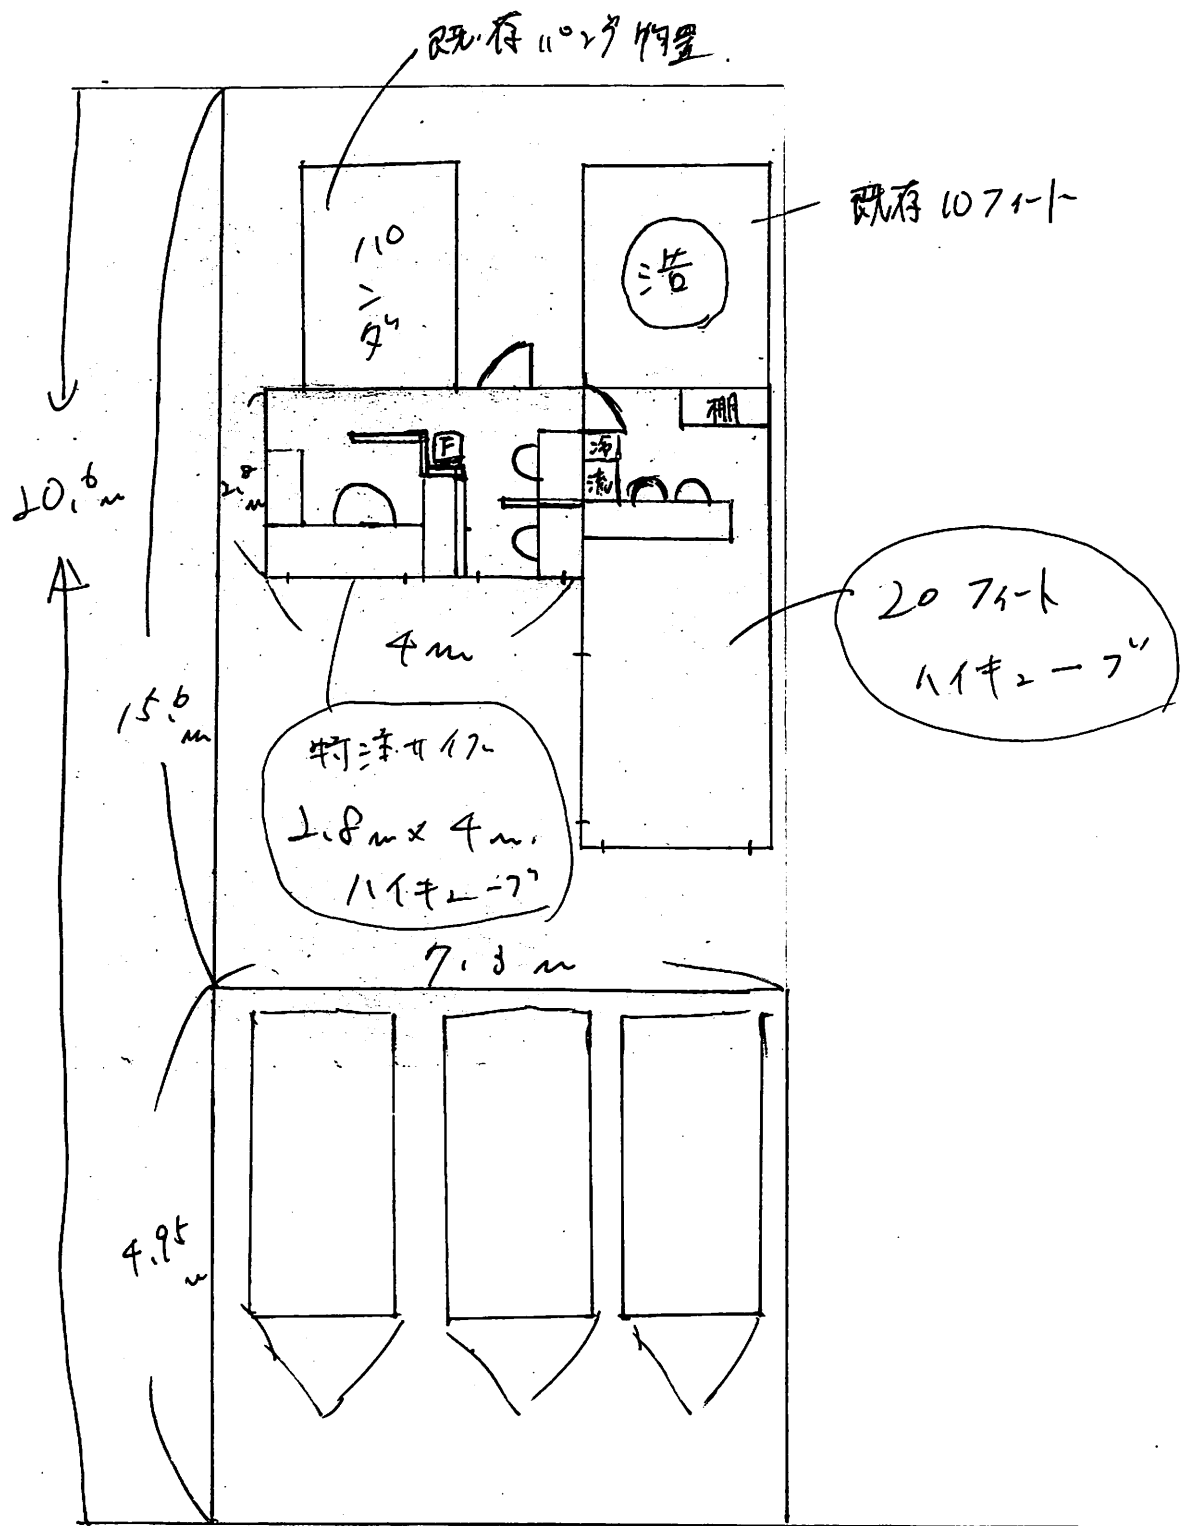 既存パンダ物置
既存10フィート
パンダ
浩
棚
冷
流
F
2.8m
20.6m
4m
20フィート
ハイキューブ
15.6m
特注サイズ
2.8m×4m.
ハイキューブ
7.3m
4.95m